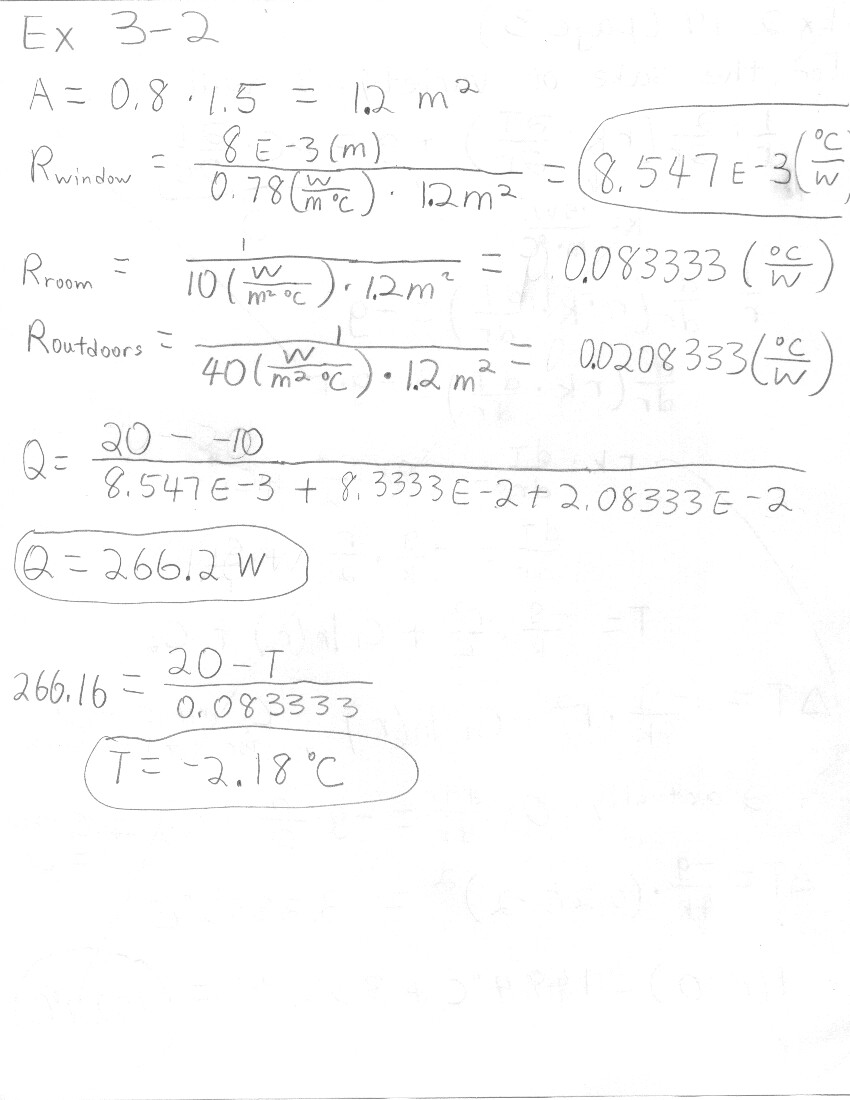 Ex 3-2
A = 0.8 · 1.5 = 1.2 m²
Rwindow = 8 E-3 (m) / 0.78 (W / m °C) · 1.2 m² = 8.547 E-3 (°C / W)
Rroom = 1 / 10 (W / m² °C) · 1.2 m² = 0.083333 (°C / W)
Routdoors = 1 / 40 (W / m² °C) · 1.2 m² = 0.0208333 (°C / W)
Q = 20 - -10 / 8.547 E-3 + 8.3333 E-2 + 2.08333 E-2
Q = 266.2 W
266.16 = 20 - T / 0.083333
T = -2.18 °C